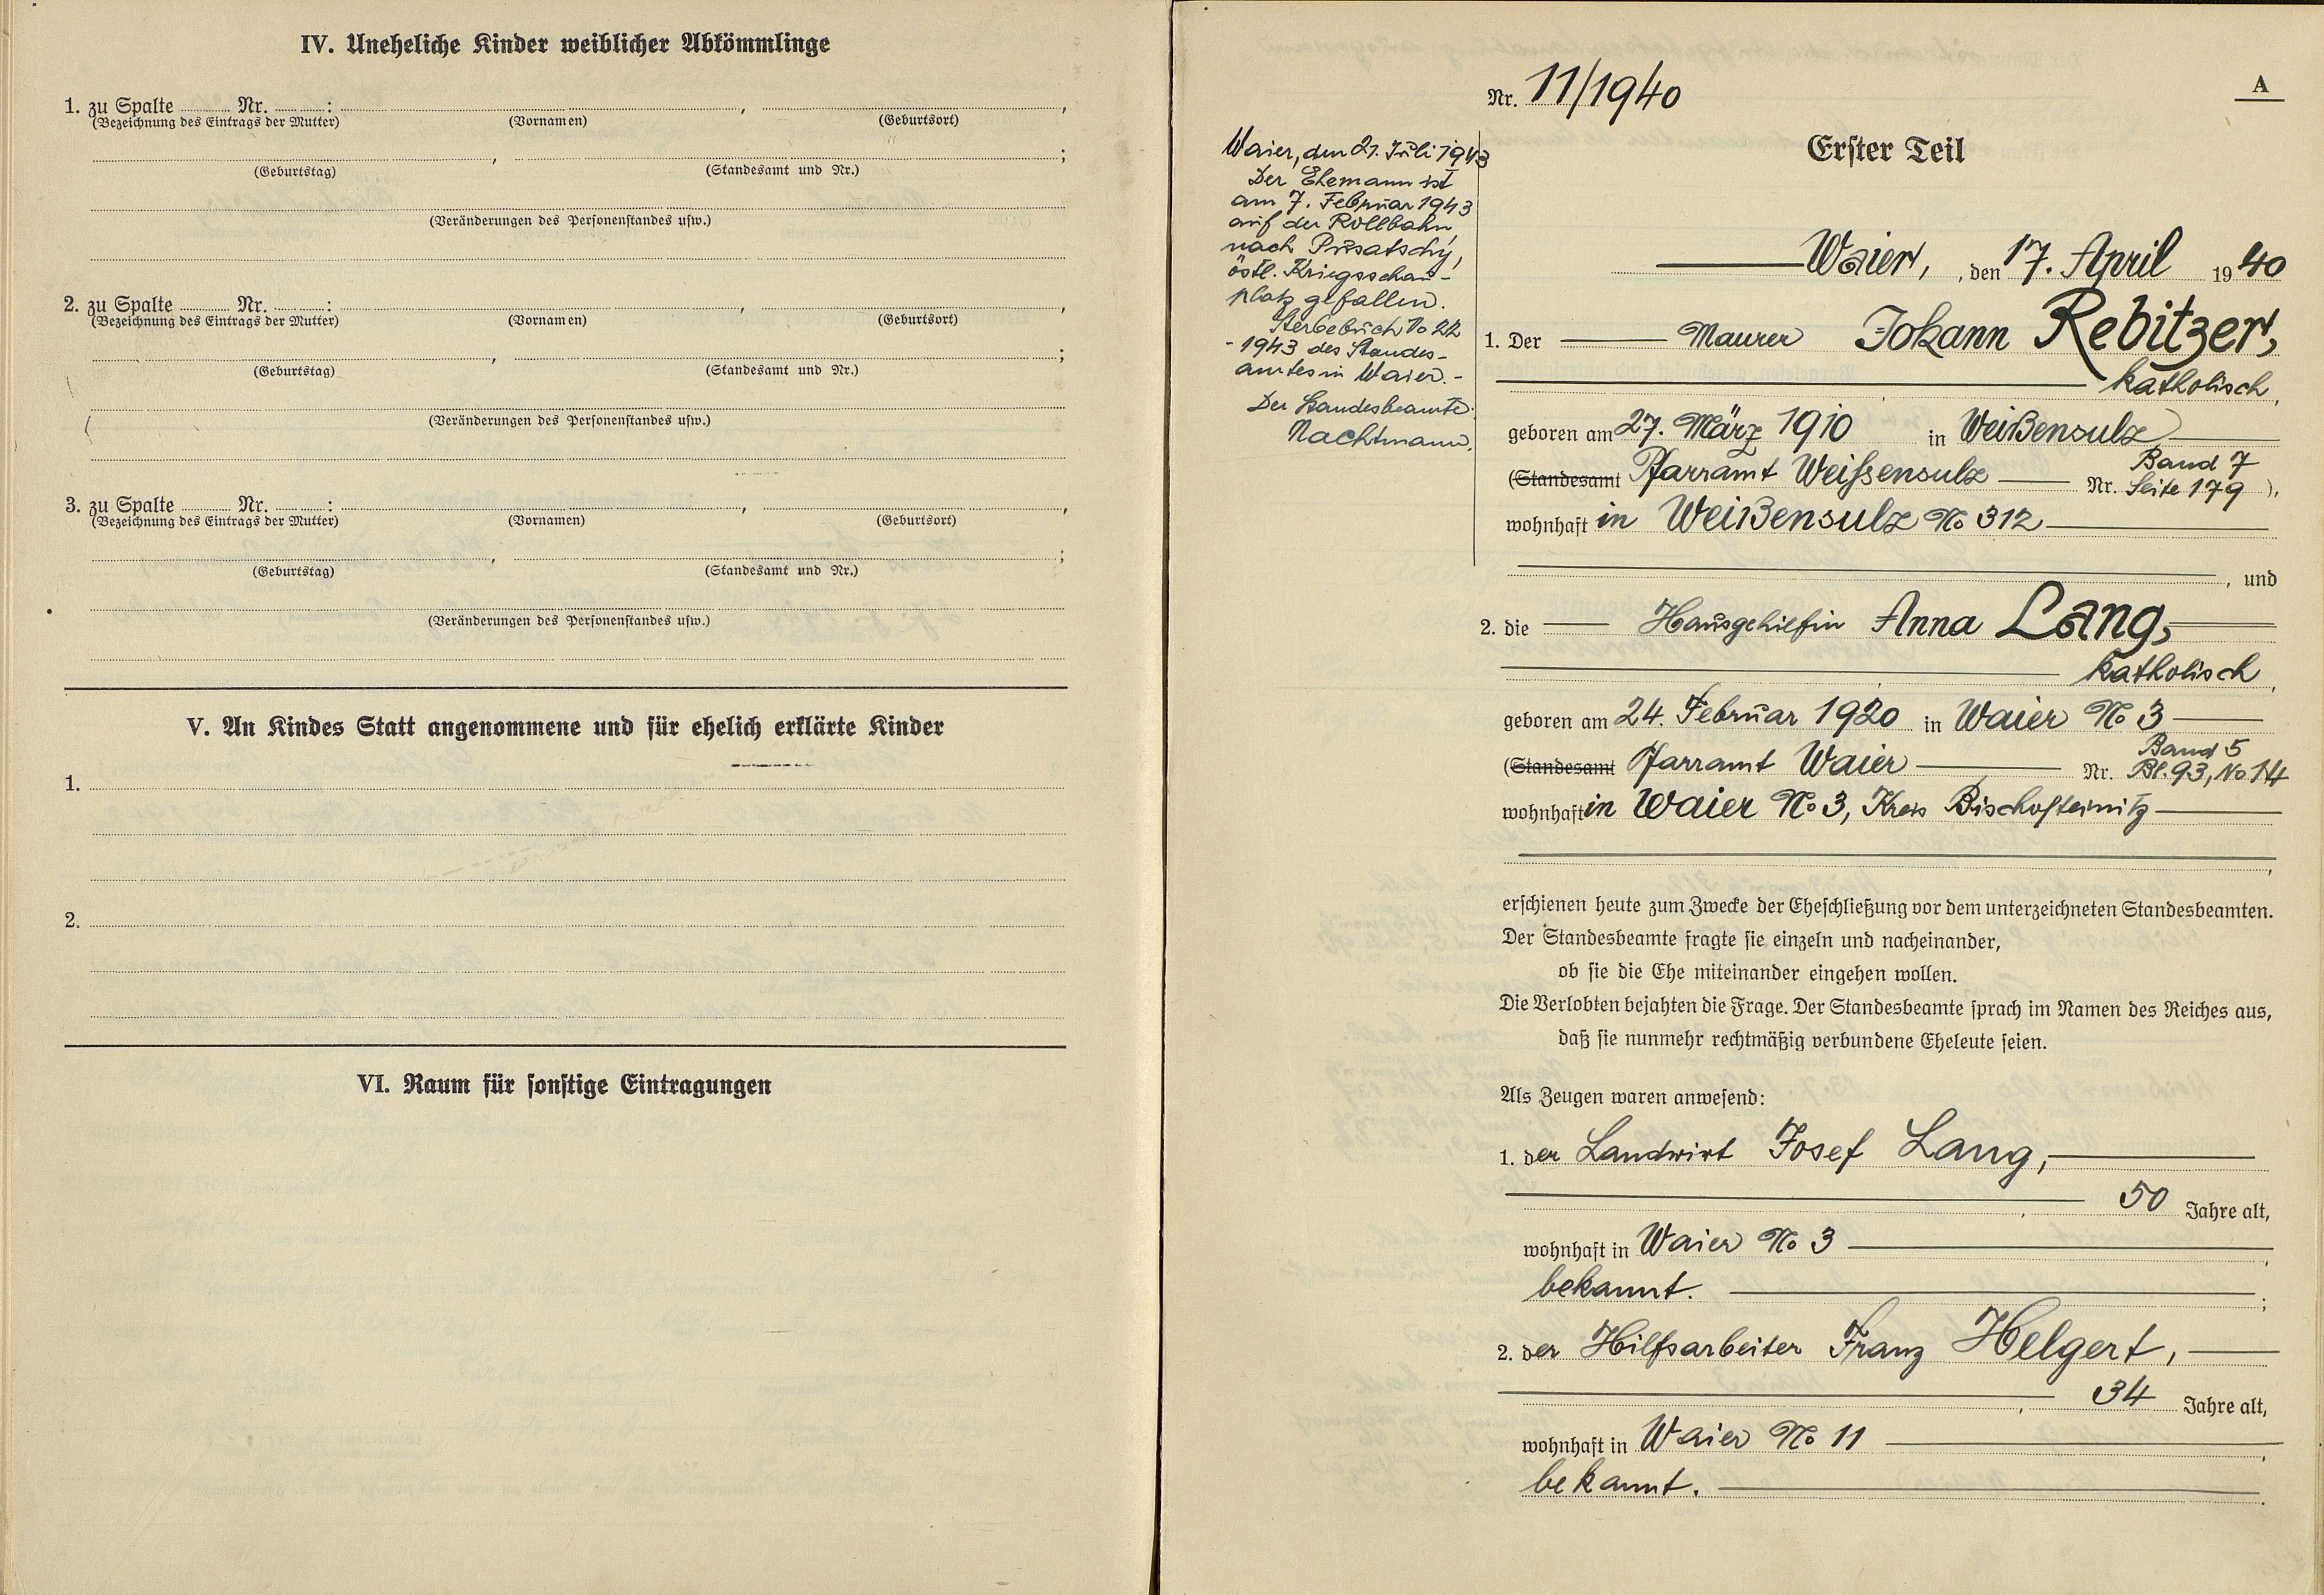 IV. Uneheliche Kinder weiblicher Abkömmlinge
1. zu Spalte ........ Nr. ........:
(Bezeichnung des Eintrags der Mutter) (Vornamen) (Geburtsort)
(Geburtstag) (Standesamt und Nr.)
(Veränderungen des Personenstandes usw.)
2. zu Spalte ........ Nr. ........:
(Bezeichnung des Eintrags der Mutter) (Vornamen) (Geburtsort)
(Geburtstag) (Standesamt und Nr.)
(Veränderungen des Personenstandes usw.)
3. zu Spalte ........ Nr. ........:
(Bezeichnung des Eintrags der Mutter) (Vornamen) (Geburtsort)
(Geburtstag) (Standesamt und Nr.)
(Veränderungen des Personenstandes usw.)
V. An Kindes Statt angenommene und für ehelich erklärte Kinder
1.
2.
VI. Raum für sonstige Eintragungen
A
Nr. 11/1940
Erster Teil
Waier, den 21. Juli 1943
Der Ehemann ist
am 7. Februar 1943
auf der Rollbahn
nach Pusatschy,
östl. Kriegsschau-
platz gefallen.
Sterbebuch No 22
- 1943 des Standes-
amtes in Waier. -
Der Standesbeamte:
Nachtmann.
Waier, , den 17. April 1940
1. Der Maurer Johann Rebitzer,
katholisch,
geboren am 27. März 1910 in Weißensulz
(Standesamt Pfarramt Weissensulz Nr. Band 7
Seite 179 ),
wohnhaft in Weißensulz No 312
, und
2. die Hausgehilfin Anna Lang,
katholisch,
geboren am 24. Februar 1920 in Waier No 3
(Standesamt Pfarramt Waier Nr. Band 5
Bl. 93, No 14
wohnhaft in Waier No 3, Kreis Bischofteinitz
erschienen heute zum Zwecke der Eheschließung vor dem unterzeichneten Standesbeamten.
Der Standesbeamte fragte sie einzeln und nacheinander,
ob sie die Ehe miteinander eingehen wollen.
Die Verlobten bejahten die Frage. Der Standesbeamte sprach im Namen des Reiches aus,
daß sie nunmehr rechtmäßig verbundene Eheleute seien.
Als Zeugen waren anwesend:
1. der Landwirt Josef Lang,
50 Jahre alt,
wohnhaft in Waier No 3
bekannt. ;
2. der Hilfsarbeiter Franz Helgert,
34 Jahre alt,
wohnhaft in Waier No 11
bekannt.